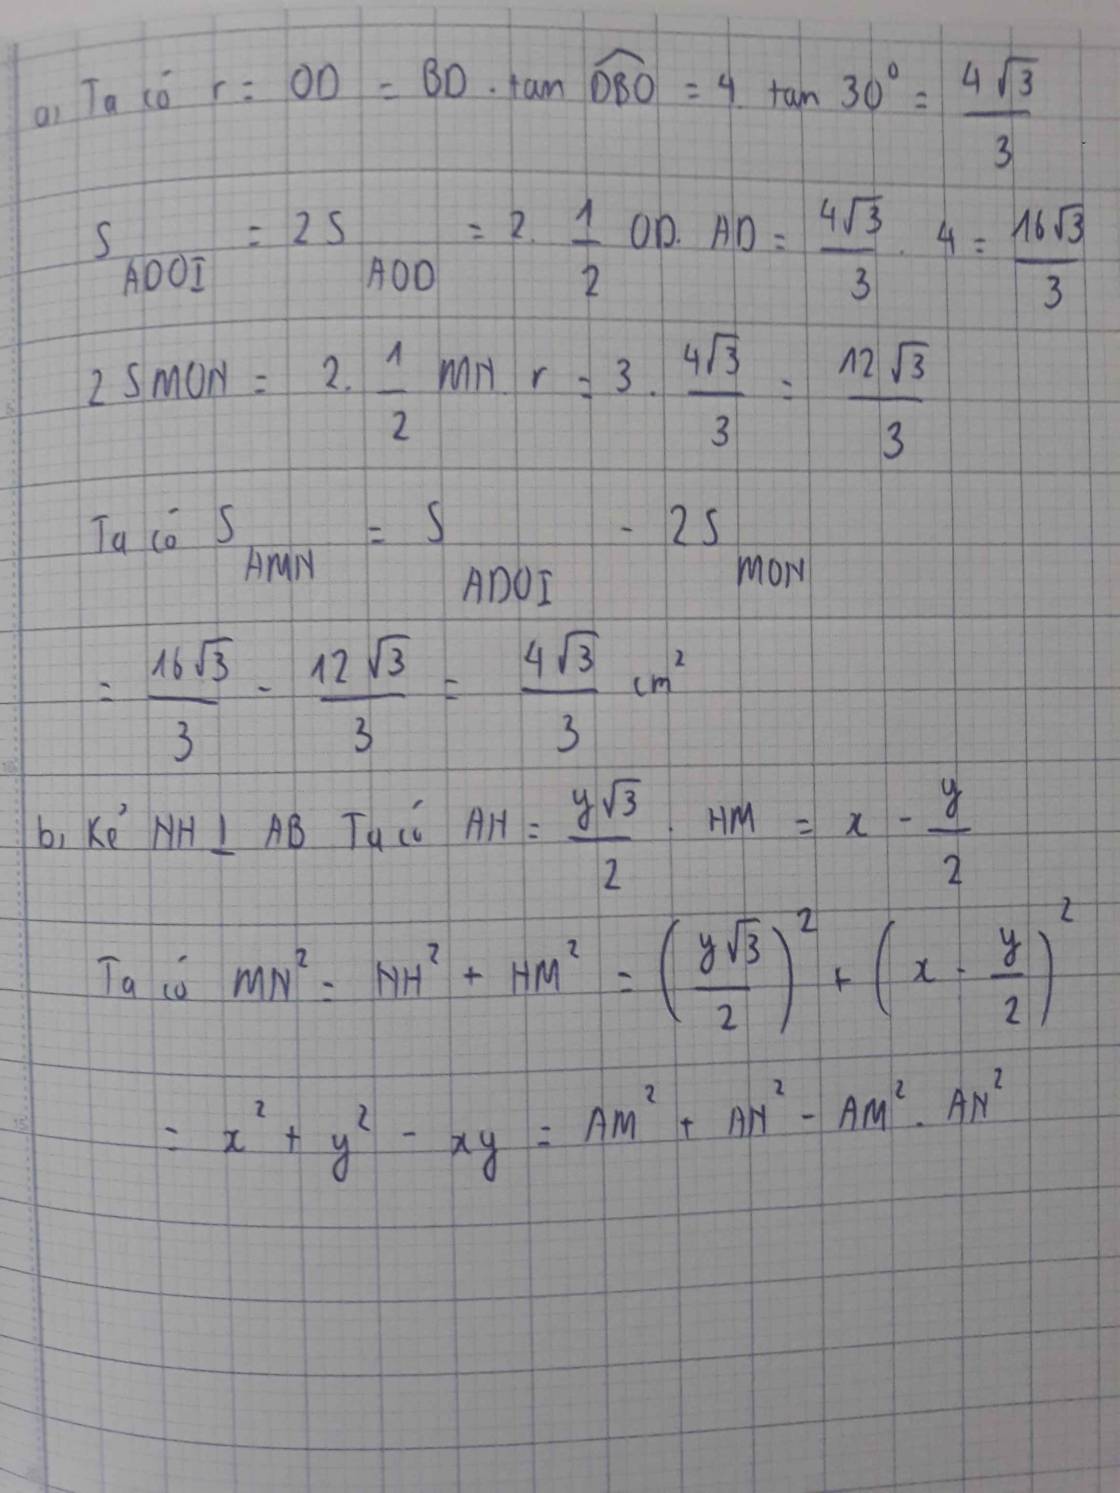 a, Ta có r = OD = BD . tan \widehat{DBO} = 4. tan 30° = \frac{4\sqrt{3}}{3}
S_{ADOI} = 2S_{AOD} = 2. \frac{1}{2} OD. AD = \frac{4\sqrt{3}}{3} . 4 = \frac{16\sqrt{3}}{3}
2SMON = 2. \frac{1}{2} MN. r = 3 . \frac{4\sqrt{3}}{3} = \frac{12\sqrt{3}}{3}
Ta có S_{AMN} = S_{ADOI} - 2S_{MON}
= \frac{16\sqrt{3}}{3} - \frac{12\sqrt{3}}{3} = \frac{4\sqrt{3}}{3} cm²
b, Kẻ NH ⊥ AB Ta có AH = \frac{y\sqrt{3}}{2} . HM = x - \frac{y}{2}
Ta có MN² = NH² + HM² = (\frac{y\sqrt{3}}{2})² + (x - \frac{y}{2})²
= x² + y² - xy = AM² + AN² - AM² . AN²